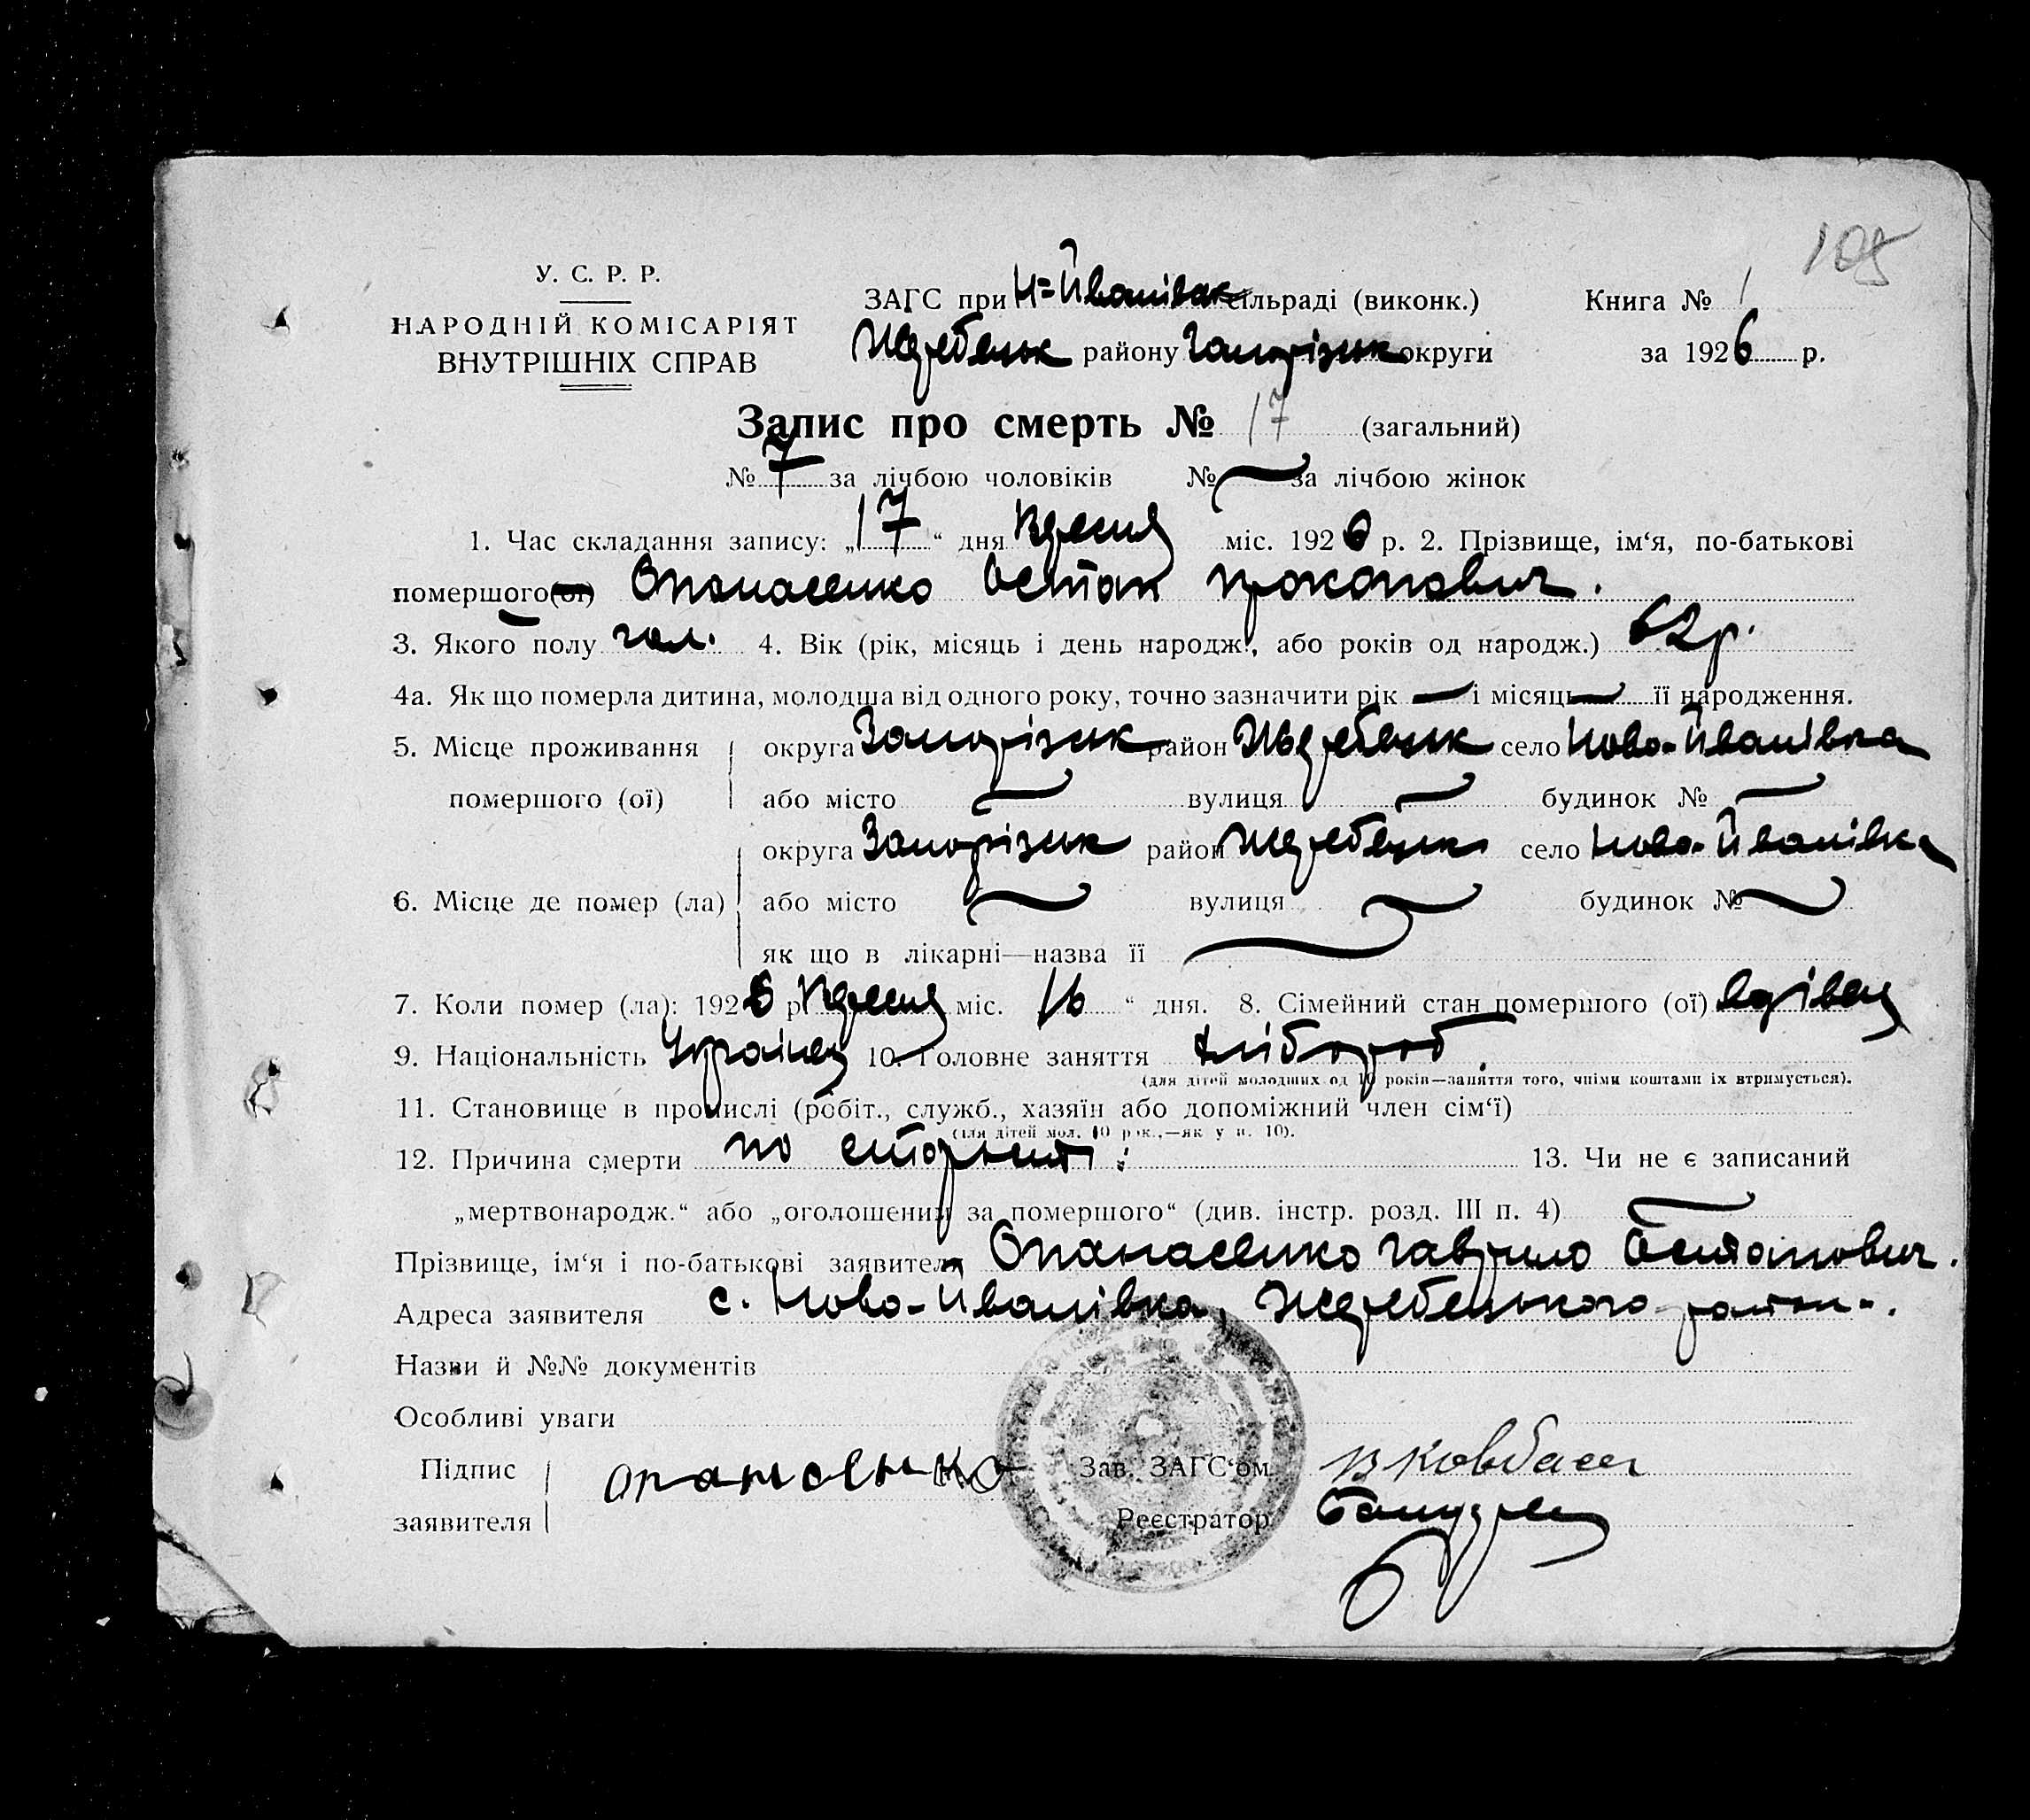 105
У. С. Р. Р.
НАРОДНІЙ КОМІСАРІЯТ
ВНУТРІШНІХ СПРАВ
ЗАГС при Н=Йванівськ сільраді (виконк.)
Книга № 1
Жеребецьк району Запорізьк округи
за 1926 р.
Запис про смерть № 17 (загальний)
№ 7 за лічбою чоловіків № за лічбою жінок
1. Час складання запису: „17“ дня Вересня міс. 1926 р. 2. Прізвище, ім‘я, по-батькові
помершого(ої) Опанасенко Остап прокопович.
3. Якого полу чол. 4. Вік (рік, місяць і день народж., або років од народж.) 62 р.
4а. Як що померла дитина, молодша від одного року, точно зазначити рік — і місяць — її народження.
5. Місце проживання округа Запорізьк район Жеребецьк село Ново-Йванівка
помершого (ої) або місто вулиця будинок №
округа Запорізьк район Жеребецьк село Ново-Йванівка
6. Місце де помер (ла) або місто вулиця будинок №
як що в лікарні—назва її
7. Коли помер (ла): 1926 р. Вересня міс. 16 “ дня. 8. Сімейний стан помершого (ої) вдівець
9. Національність Українец 10. Головне заняття хлібороб.
(для дітей молодших од 10 років—заняття того, чиїми коштами їх втримується).
11. Становище в промислі (робіт., служб., хазяїн або допоміжний член сім‘ї)
(для дітей мол. 10 рок.,—як у п. 10).
12. Причина смерти по старості. 13. Чи не є записаний
„мертвонародж.“ або „оголошений за помершого“ (див. інстр. розд. III п. 4)
Прізвище, ім‘я і по-батькові заявителя Опанасенко Гаврило Остапович.
Адреса заявителя с. Ново-Йванівка, Жеребецького район.
Назви й №№ документів
Особливі уваги
Підпис
заявителя
опанасенко
Зав. ЗАГС‘ом
Реєстратор